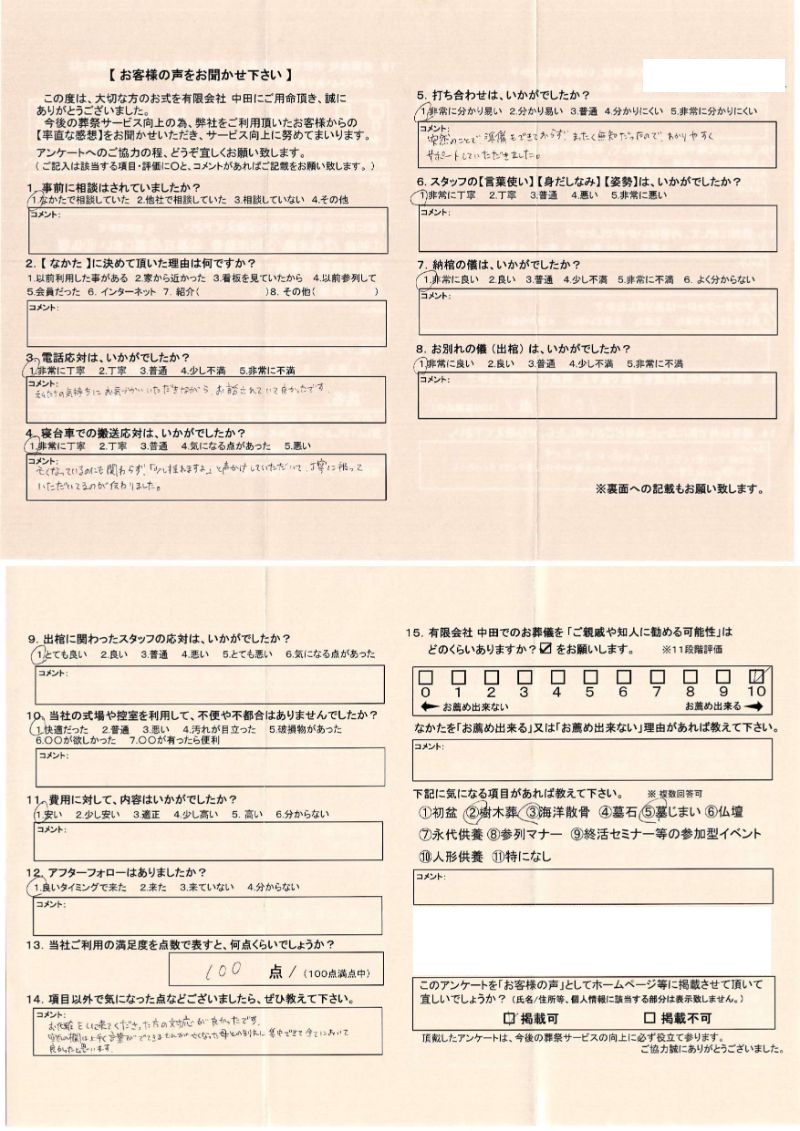 【 お客様の声をお聞かせ下さい 】
この度は、大切な方のお式を有限会社 中田にご用命頂き、誠に
ありがとうございました。
今後の葬祭サービス向上の為、弊社をご利用頂いたお客様からの
【率直な感想】をお聞かせいただき、サービス向上に努めてまいります。
アンケートへのご協力の程、どうぞ宜しくお願い致します。
( ご記入は該当する項目・評価に〇と、コメントがあればご記載をお願い致します。)
1. 事前に相談はされていましたか?
1.なかたで相談していた 2.他社で相談していた 3.相談していない 4.その他
コメント:
2.【 なかた 】に決めて頂いた理由は何ですか?
1.以前利用した事がある 2.家から近かった 3.看板を見ていたから 4.以前参列して
5.会員だった 6. インターネット 7. 紹介( )8. その他( )
コメント:
3. 電話応対は、いかがでしたか?
1.非常に丁寧 2.丁寧 3.普通 4.少し不満 5.非常に不満
コメント:
私たちの気持ちにお気づかいいただきながら、お話されていて良かったです。
4. 寝台車での搬送応対は、いかがでしたか?
1.非常に丁寧 2.丁寧 3.普通 4.気になる点があった 5.悪い
コメント:
亡くなっているのにも関わらず「少し揺れますよ」と声かけしていただいて、丁寧に扱って
いただいてるのが伝わりました。
5. 打ち合わせは、いかがでしたか?
1.非常に分かり易い 2.分かり易い 3.普通 4.分かりにくい 5.非常に分かりにくい
コメント:
突然のことで準備もできておらず、まったく無知だったので、わかりやすく
サポートしていただきました。
6. スタッフの【言葉使い】【身だしなみ】【姿勢】は、いかがでしたか?
1.非常に丁寧 2.丁寧 3.普通 4.悪い 5.非常に悪い
コメント:
7. 納棺の儀は、いかがでしたか?
1.非常に良い 2.良い 3.普通 4.少し不満 5.非常に不満 6. よく分からない
コメント:
8. お別れの儀(出棺)は、いかがでしたか?
1.非常に良い 2.良い 3.普通 4.少し不満 5.非常に不満
コメント:
※裏面への記載もお願い致します。
9. 出棺に関わったスタッフの応対は、いかがでしたか?
1.とても良い 2.良い 3.普通 4.悪い 5.とても悪い 6.気になる点があった
コメント:
10. 当社の式場や控室を利用して、不便や不都合はありませんでしたか?
1.快適だった 2.普通 3.悪い 4.汚れが目立った 5.破損物があった
6.〇〇が欲しかった 7.〇〇が有ったら便利
コメント:
11. 費用に対して、内容はいかがでしたか?
1.安い 2.少し安い 3.適正 4.少し高い 5. 高い 6.分からない
コメント:
12. アフターフォローはありましたか?
1.良いタイミングで来た 2.来た 3.来ていない 4.分からない
コメント:
13. 当社ご利用の満足度を点数で表すと、何点くらいでしょうか?
100 点 / (100点満点中)
14. 項目以外で気になった点などございましたら、ぜひ教えて下さい。
コメント:
お化粧をしに来てくださった方の対応が良かったです。
上手く言葉がでてきませんが亡くなった母とのお別れに集中できて全てにおいて
良かったと思います。
15. 有限会社 中田でのお葬儀を「ご親戚や知人に勧める可能性」は
どのくらいありますか? ☑ をお願いします。 ※11段階評価
0 1 2 3 4 5 6 7 8 9 10
お薦め出来ない お薦め出来る
なかたを「お薦め出来る」又は「お薦め出来ない」理由があれば教えて下さい。
コメント:
下記に気になる項目があれば教えて下さい。 ※ 複数回答可
①初盆 ②樹木葬 ③海洋散骨 ④墓石 ⑤墓じまい ⑥仏壇
⑦永代供養 ⑧参列マナー ⑨終活セミナー等の参加型イベント
⑩人形供養 ⑪特になし
コメント:
このアンケートを「お客様の声」としてホームページ等に掲載させて頂いて
宜しいでしょうか? (氏名/住所等、個人情報に該当する部分は表示致しません。)
☑ 掲載可 □ 掲載不可
頂戴したアンケートは、今後の葬祭サービスの向上に必ず役立て参ります。
ご協力誠にありがとうございました。